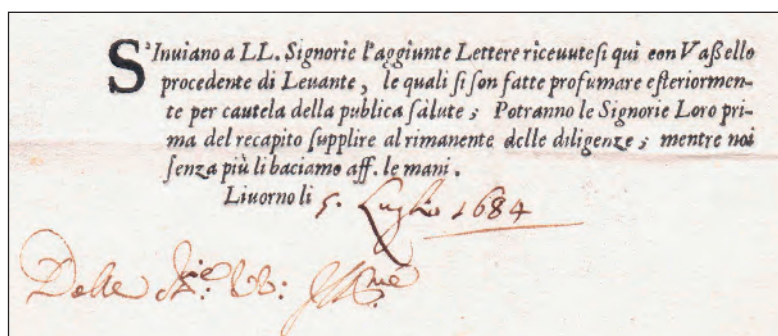 S'Inuiano a LL. Signorie l'aggiunte Lettere riceuutesi qui con Vaßello
procedente di Leuante, le quali si son fatte profumare esteriormen-
te per cautela della publica sàlute; Potranno le Signorie Loro pri-
ma del recapito supplire al rimanente delle diligenze; mentre noi
senza più li baciamo aff. le mani.
Liuorno li 5. Luglio 1684
Delle